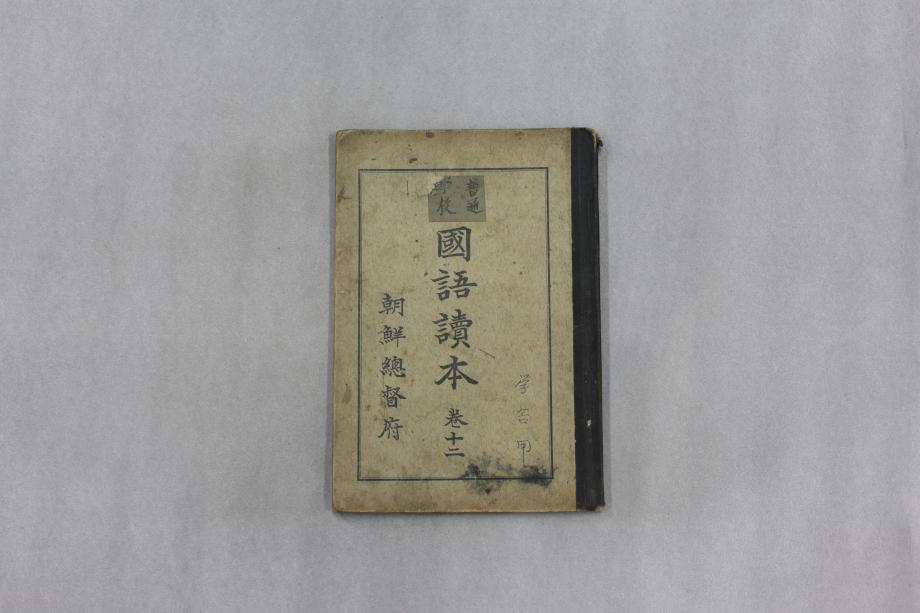 普通
學校
國語讀本 卷十二
朝鮮總督府